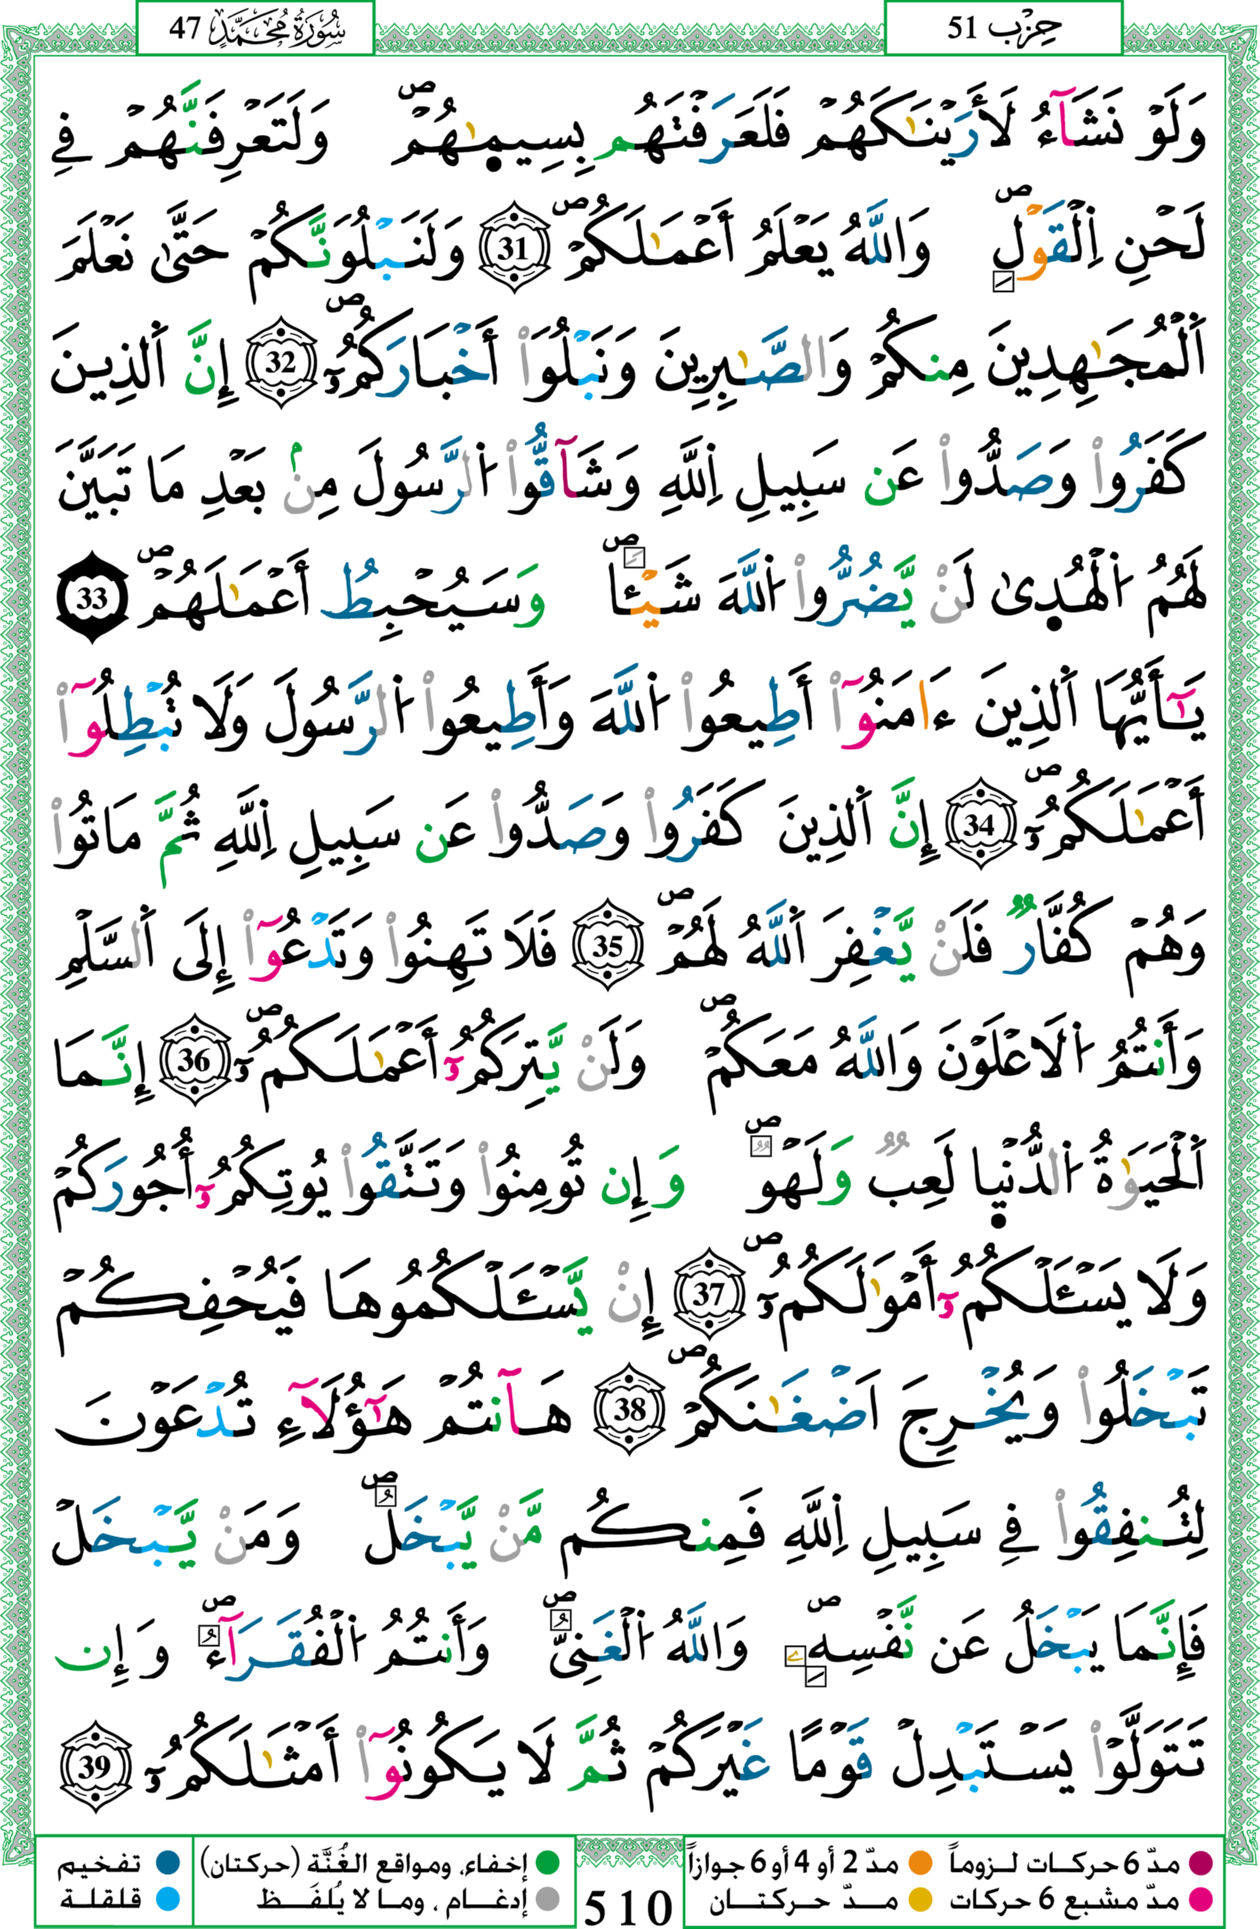 حِزْب 51
سُورَةُ مُحَمَّدٍ 47
وَلَوْ نَشَآءُ لَأَرَيْنَٰكَهُمْ فَلَعَرَفْتَهُم بِسِيمٰٜهُمْۖ وَلَتَعْرِفَنَّهُمْ فِے
لَحْنِ اِ۬لْقَوْلِۖ وَاللَّهُ يَعْلَمُ أَعْمَٰلَكُمْۖ 31 وَلَنَبْلُوَنَّكُمْ حَتَّىٰ نَعْلَمَ
اَ۬لْمُجَٰهِدِينَ مِنكُمْ وَالصَّٰبِرِينَ وَنَبْلُوَاْ أَخْبَارَكُمُۥٓۖ 32 إِنَّ اَ۬لذِينَ
كَفَرُواْ وَصَدُّواْ عَن سَبِيلِ اِ۬للَّهِ وَشَآقُّواْ اُ۬لرَّسُولَ مِنۢ بَعْدِ مَا تَبَيَّنَ
لَهُمُ اُ۬لْهُدٜىٰ لَنْ يَّضُرُّواْ اُ۬للَّهَ شَيْـٔاًۖ وَسَيُحْبِطُ أَعْمَٰلَهُمْۖ 33
يَٰٓأَيُّهَا اَ۬لذِينَ ءَامَنُوٓاْ أَطِيعُواْ اُ۬للَّهَ وَأَطِيعُواْ اُ۬لرَّسُولَ وَلَا تُبْطِلُوٓاْ
أَعْمَٰلَكُمُۥٓۖ 34 إِنَّ اَ۬لذِينَ كَفَرُواْ وَصَدُّواْ عَن سَبِيلِ اِ۬للَّهِ ثُمَّ مَاتُواْ
وَهُمْ كُفَّارٞ فَلَنْ يَّغْفِرَ اَ۬للَّهُ لَهُمْۖ 35 فَلَا تَهِنُواْ وَتَدْعُوٓاْ إِلَى اَ۬لسَّلْمِ
وَأَنتُمُ اُ۬لَاعْلَوْنَ وَاللَّهُ مَعَكُمْۖ وَلَنْ يَّتِرَكُمُۥٓ أَعْمَٰلَكُمُۥٓۖ 36 إِنَّمَا
اَ۬لْحَيَوٰةُ اُ۬لدُّنْيٜا لَعِبٞ وَلَهْوٞۖ وَإِن تُومِنُواْ وَتَتَّقُواْ يُوتِكُمُۥٓ أُجُورَكُمْ
وَلَا يَسْـَٔلْكُمُۥٓ أَمْوَٰلَكُمُۥٓۖ 37 إِنْ يَّسْـَٔلْكُمُوهَا فَيُحْفِكُمْ
تَبْخَلُواْ وَيُخْرِجَ اَضْغَٰنَكُمْۖ 38 هَآنتُمْ هَٰٓؤُلَآءِ تُدْعَوْنَ
لِتُنفِقُواْ فِے سَبِيلِ اِ۬للَّهِ فَمِنكُم مَّنْ يَّبْخَلُۖ وَمَنْ يَّبْخَلْ
فَإِنَّمَا يَبْخَلُ عَن نَّفْسِهِۦۖ وَاللَّهُ اُ۬لْغَنِيُّۖ وَأَنتُمُ اُ۬لْفُقَرَآءُۖ وَإِن
تَتَوَلَّوْاْ يَسْتَبْدِلْ قَوْمًا غَيْرَكُمْ ثُمَّ لَا يَكُونُوٓاْ أَمْثَٰلَكُمُۥٓ 39
مدّ 6 حركات لـزوماً مدّ 2 أو 4 أو 6 جوازاً
مدّ مشبع 6 حركات مـدّ حـركتـان
510
إخفاء، ومواقع الغُنَّة (حركتان) تفخيم
إدغـام ، ومـا لا يُلفَـظ قلقلة